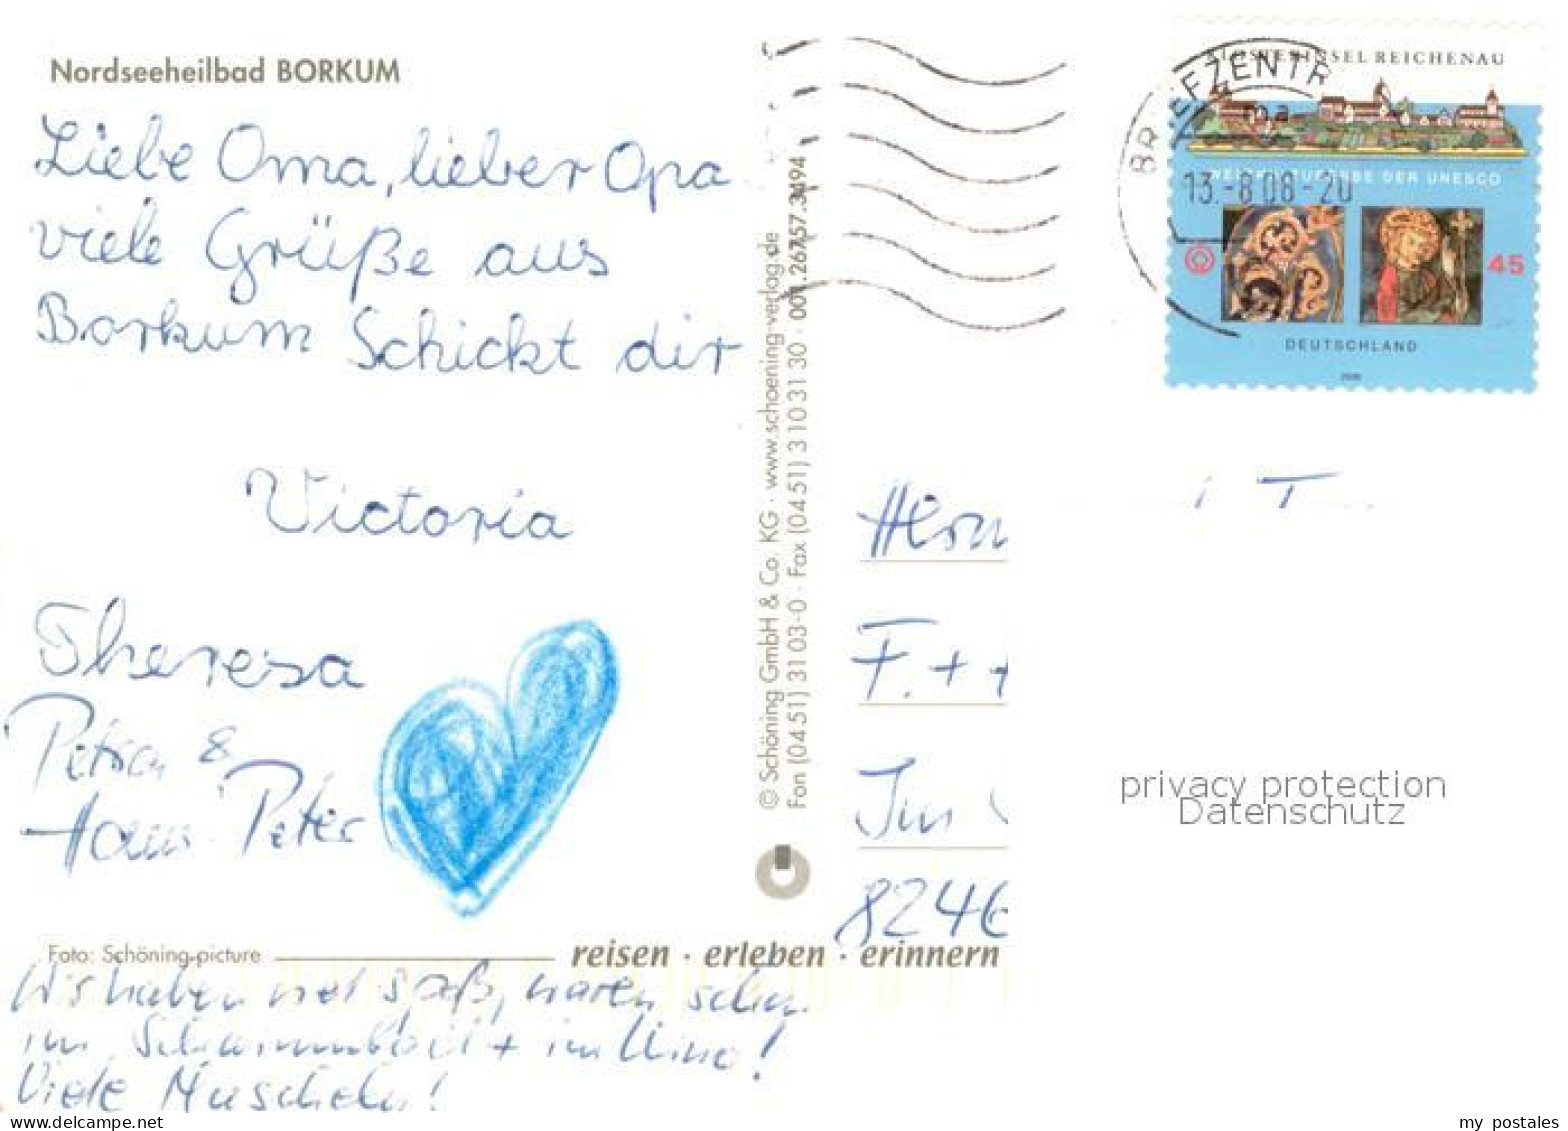 Nordseeheilbad BORKUM
Liebe Oma, lieber Opa
viele Grüße aus
Borkum Schickt dir
Victoria
Theresa
Petra &
Hans-Peter
Foto: Schöning-picture
reisen · erleben · erinnern
Wir haben viel Spaß, waren schon
im Schwimmbad + im Kino!
Viele Muscheln!
© Schöning GmbH & Co. KG · www.schoening-verlag.de
Fon (0451) 3103-0 · Fax (0451) 3103130 · 001.26757.3494
KLOSTERINSEL REICHENAU
WELTKULTURERBE DER UNESCO
45
DEUTSCHLAND
BRIEFZENTR
13.-8.08-20
T
F.
Im
8246
privacy protection
Datenschutz
www.delcampe.net
my_postales